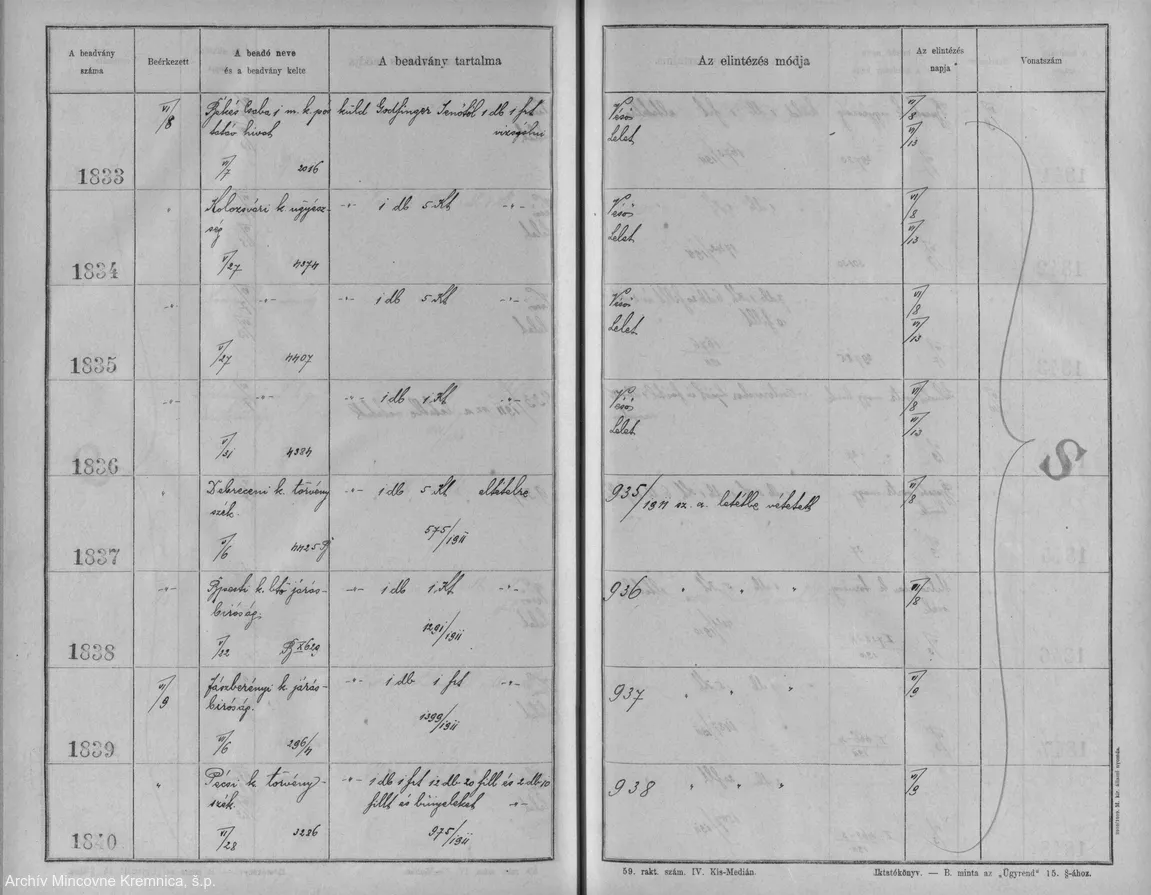 A beadvány száma
Beérkezett
A beadó neve és a beadvány kelte
A beadvány tartalma
Az elintézés módja
Az elintézés napja
Vonatszám
1833
VI/8
Békés Csaba i m. k. pos
táv hivat
2016
küld Jenőtől 1 db 1 frt
vizsgálni
Véső
Lelet
VI/8
VI/13
1834
"
Kolozsvári k. ügyész-
ség
V/27 4374
-"- 1 db 5 Kt -"-
Véső
Lelet
VI/8
VI/13
1835
-"-
-"-
V/27 4407
-"- 1 db 5 Kt -"-
Véső
Lelet
VI/8
VI/13
1836
-"-
-"-
V/31 4384
-"- 1 db 1 Kt -"-
Véső
Lelet
VI/8
VI/13
1837
"
Debreceni k. törvény
szék.
VI/6 4425
-"- 1 db 5 Kt eltételre
575/1911
935/1911 sz. a. letétbe vétetett
VI/8
1838
-"-
Bpesti k. btő járás-
biróság.
V/22 X 629
-"- 1 db 1 Kt -"-
1291/1911
936 " " "
VI/8
1839
VI/9
Jászberényi k. járás-
biróság.
VI/6 296/4
-"- 1 db 1 frt -"-
1399/1911
937 " " "
VI/9
1840
"
Pécsi k. törvény-
szék.
3286
-"- 1 db 1 frt 12 db 20 fill és 2 db 10
fillt és bűnjeleket -"-
975/1911
938 " " "
VI/9
S
59. rakt. szám. IV. Kis-Medián.
Iktatókönyv. — B. minta az „Ügyrend" 15. §-ához.
Archív Mincovne Kremnica, š.p.